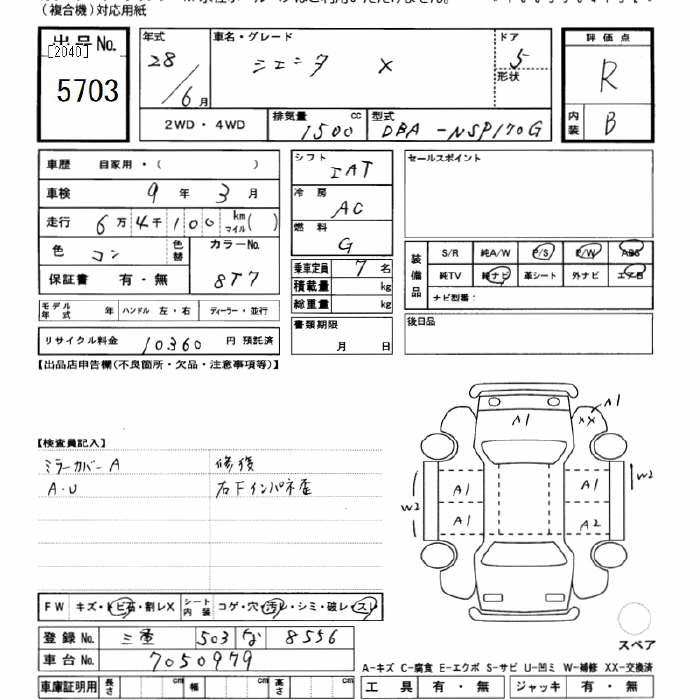 (複合機)対応用紙
出品No.
[2040]
5703
年式 28/6月
車名・グレード シエンタ X
ドア 5
形状
評価点 R
内装 B
2WD・4WD
排気量 1500 cc
型式 DBA-NSP170G
車歴 自家用・( )
車検 9年3月
走行 6万4千100 km マイル( )
色 コン 色替
カラーNo. 8T7
保証書 有・無
シフト IAT
冷房 AC
燃料 G
乗車定員 7名
積載量 kg
総重量 kg
書類期限 月 日
セールスポイント
装備品 S/R 純A/W P/S P/W ABS
純TV 純ナビ 革シート 外ナビ エアB
ナビ型番:
後日品
モデル年式 年 ハンドル 左・右 ディーラー・並行
リサイクル料金 10360 円 預託済
【出品店申告欄(不良箇所・欠品・注意事項等)】
【検査員記入】
ミラーカバーA 修復
A・U 右Fインパネ歪
A1
A1
XX
W2
A1
A1
A1
A2
W2
FW キズ・トビ石・割レX シート内装 コゲ・穴・汚レ・シミ・破レ・スレ
登録No. 三重 503 な 8556
車台No. 7050979
車庫証明用 長さ cm 幅 cm 高さ cm
スペア
A-キズ C-腐食 E-エクボ S-サビ U-凹ミ W-補修 XX-交換済
工具 有・無 ジャッキ 有・無